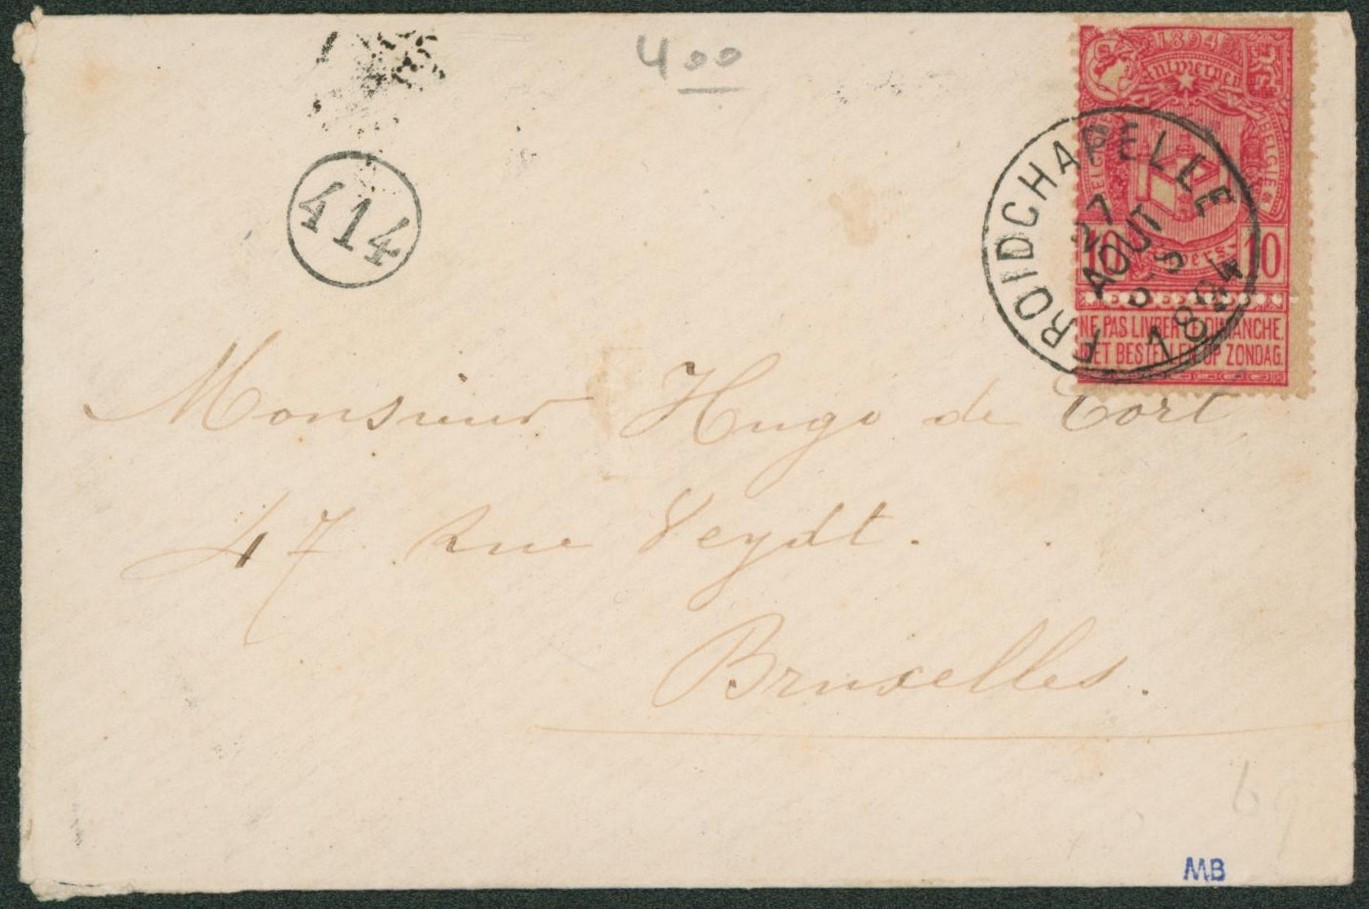 400
414
1894
Antwerpen
BELGIË
Anvers
10 10
NE PAS LIVRER LE DIMANCHE
NIET BESTELLEN OP ZONDAG
FROIDCHAPELLE
27
AOUT
1894
Monsieur Hugo de Cort,
47 Rue Veydt.
Bruxelles.
MB